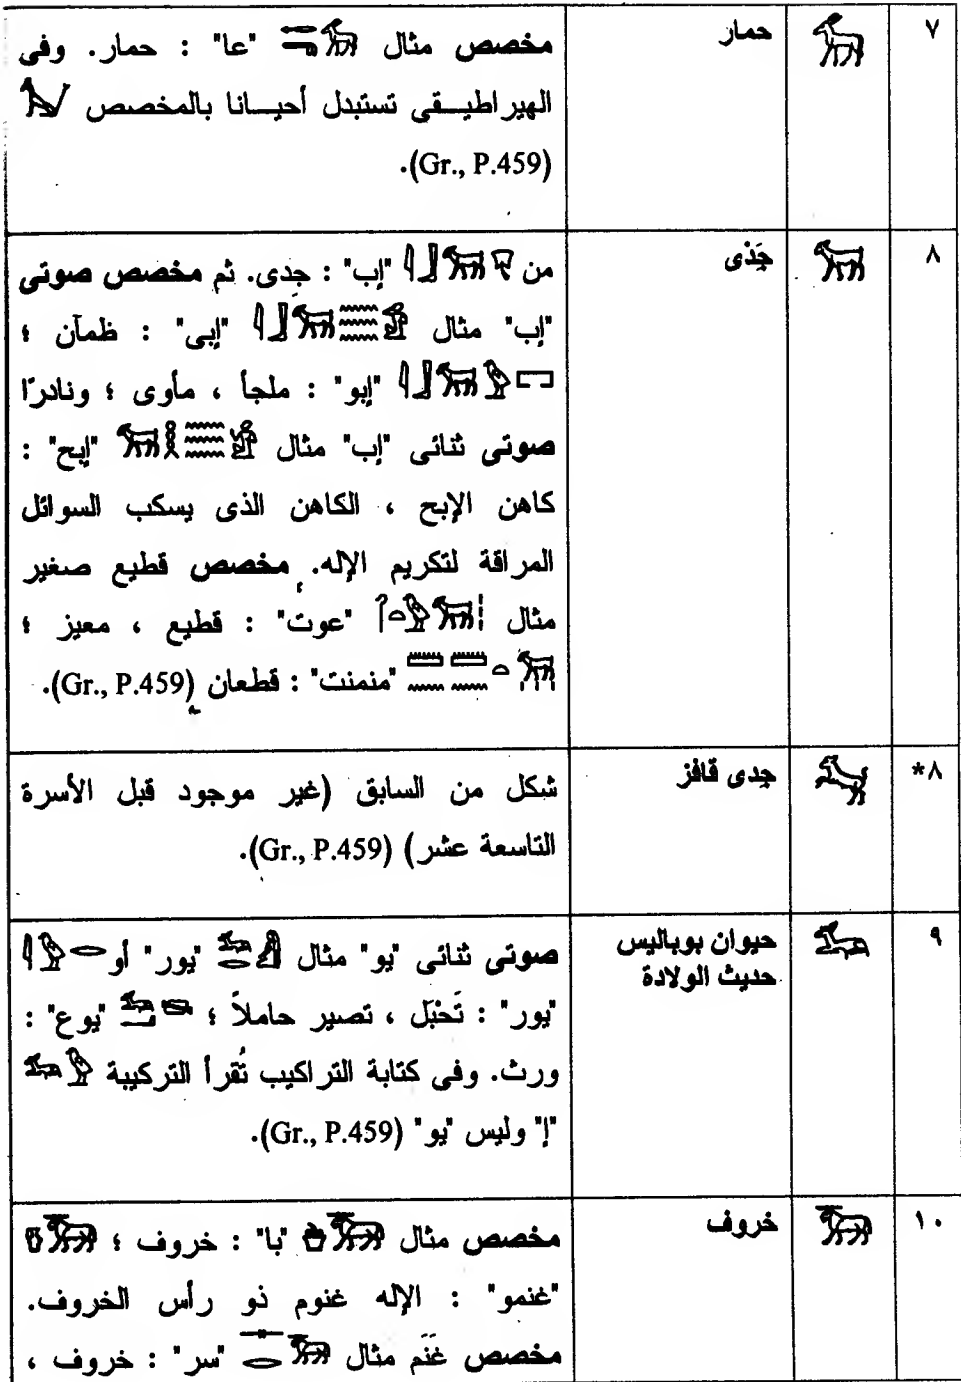 ٧ حمار مخصص مثال "عا" : حمار. وفى
الهيراطيـــقى تستبدل أحيـــانا بالمخصص
(Gr., P.459).
٨ جَدْى من "إب" : جدى. ثم مخصص صوتى
"إب" مثال "إبى" : ظمآن ؛
"إبو" : ملجأ ، مأوى ؛ ونادرًا
صوتى ثنائى "إب" مثال "إبح" :
كاهن الإبح ، الكاهن الذى يسكب السوائل
المراقة لتكريم الإله. مخصص قطيع صغير
مثال "عوت" : قطيع ، معيز ؛
"منمنت" : قطعان (Gr., P.459).
*٨ جدى قافز شكل من السابق (غير موجود قبل الأسرة
التاسعة عشر) (Gr., P.459).
٩ حيوان بوباليس صوتى ثنائى "يو" مثال "يور" أو
حديث الولادة "يور" : تَحْبَل ، تصير حاملاً ؛ "يوع" :
ورث. وفى كتابة التراكيب تُقرأ التركيبة
"إ" وليس "يو" (Gr., P.459).
١٠ خروف مخصص مثال "با" : خروف ؛
"غنمو" : الإله غنوم ذو رأس الخروف.
مخصص غَنَم مثال "سر" : خروف ،